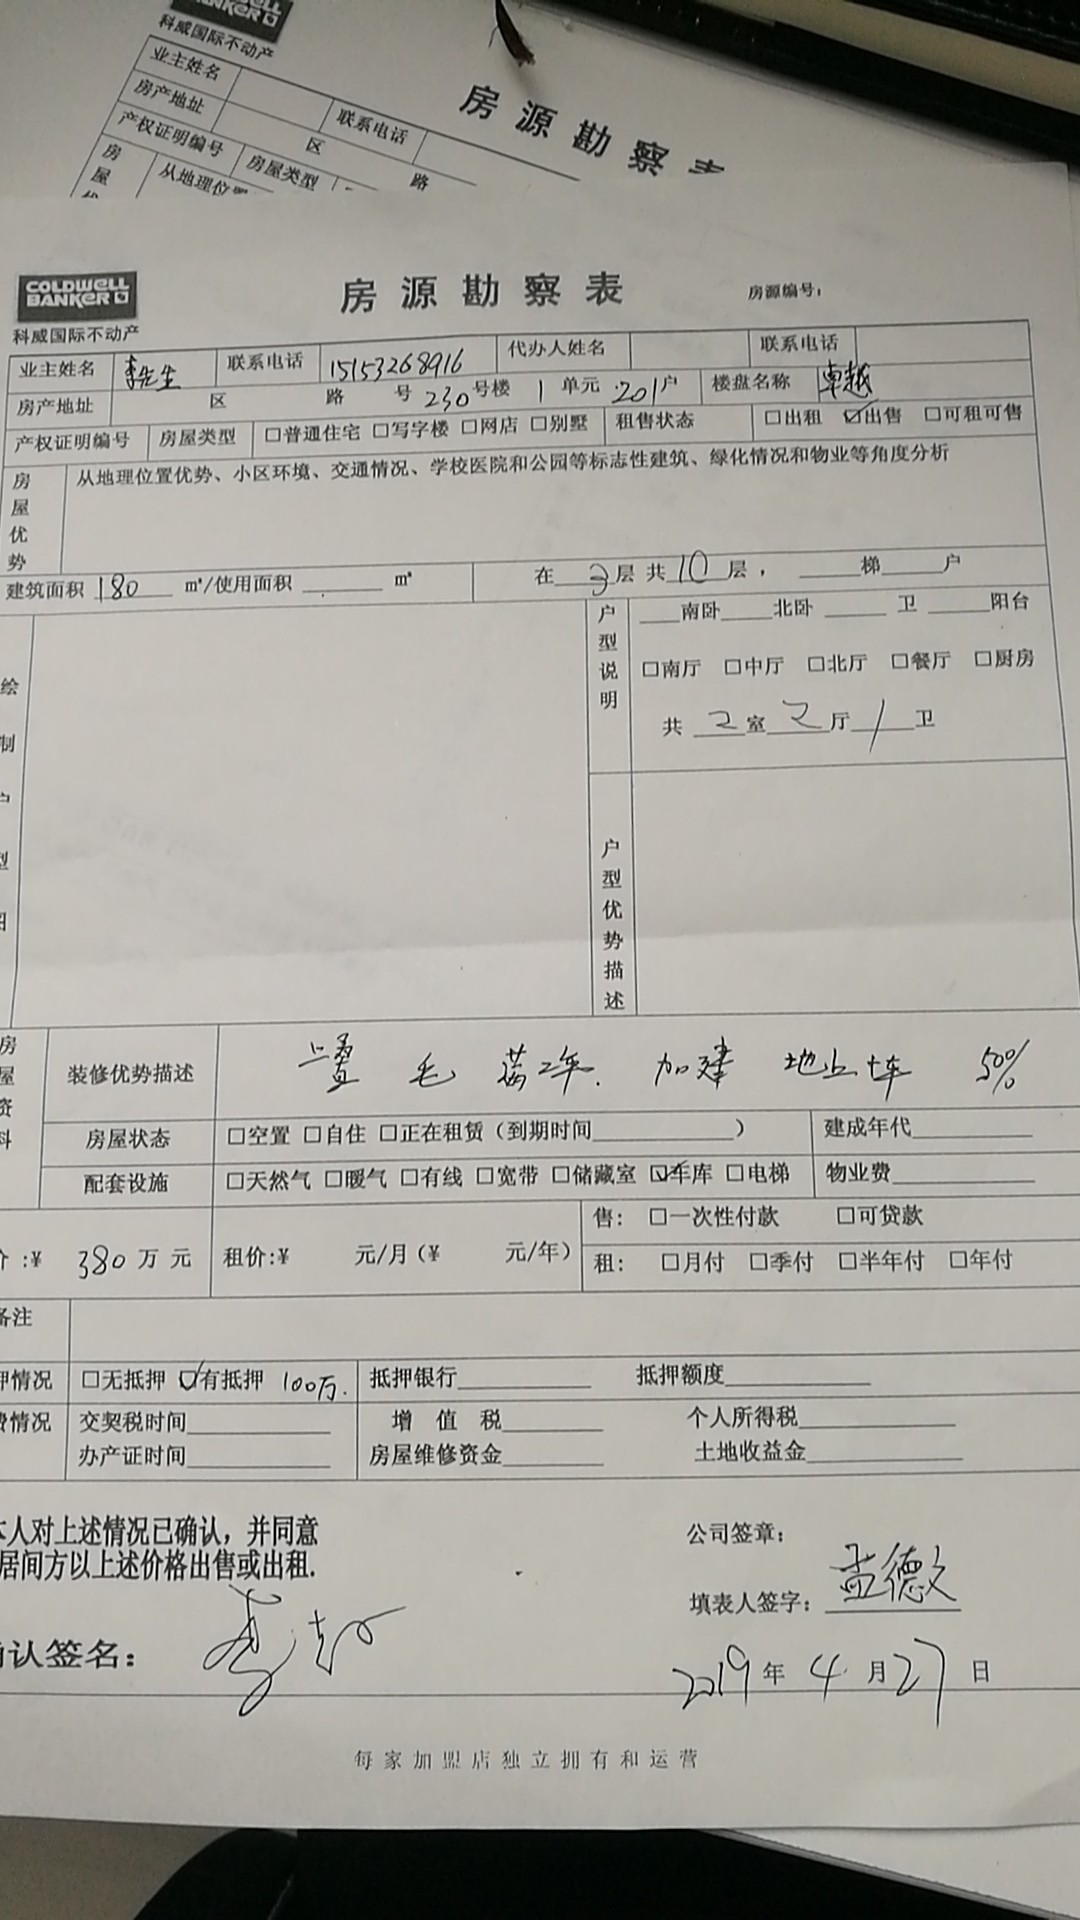 COLDWELL
BANKER
科威国际不动产
房源勘察表
业主姓名
联系电话
房产地址 区 路
产权证明编号 房屋类型
房
屋
从地理位置
COLDWELL
BANKER
科威国际不动产
房源勘察表
房源编号：
业主姓名 李先生 联系电话 15153268916 代办人姓名 联系电话
房产地址 区 路 号 230 号楼 1 单元 201 户 楼盘名称 卓越
产权证明编号 房屋类型 □普通住宅 □写字楼 □网店 □别墅 租售状态 □出租 ☑出售 □可租可售
房屋优势 从地理位置优势、小区环境、交通情况、学校医院和公园等标志性建筑、绿化情况和物业等角度分析
建筑面积 180 ㎡/使用面积______ ㎡ 在 3 层 共 10 层，____梯____户
绘制户型图
户型说明 ___南卧___北卧____卫____阳台
□南厅 □中厅 □北厅 □餐厅 □厨房
共 2 室 2 厅 1 卫
户型优势描述
房屋资料
装修优势描述 毛 加建 地上 50%
房屋状态 □空置 □自住 □正在租赁（到期时间__________） 建成年代________
配套设施 □天然气 □暖气 □有线 □宽带 □储藏室 ☑车库 □电梯 物业费________
价:¥ 380 万元 租价:¥ 元/月（¥ 元/年）
售: □一次性付款 □可贷款
租: □月付 □季付 □半年付 □年付
备注
押情况 □无抵押 ☑有抵押 100万. 抵押银行________ 抵押额度________
费情况 交契税时间________ 增值税________ 个人所得税________
办产证时间________ 房屋维修资金________ 土地收益金________
本人对上述情况已确认，并同意
居间方以上述价格出售或出租.
公司签章：
填表人签字： 孟德文
确认签名：
2019 年 4 月 27 日
每家加盟店独立拥有和运营